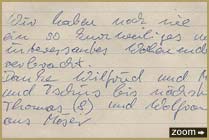 Wir haben noch nie
ein so kurzweiliges
interessantes Wochenend
verbracht.
Danke Wilfried und
und Tschüs bis nächst
Thomas (8) und Wolfgan
aus Moser
zoom